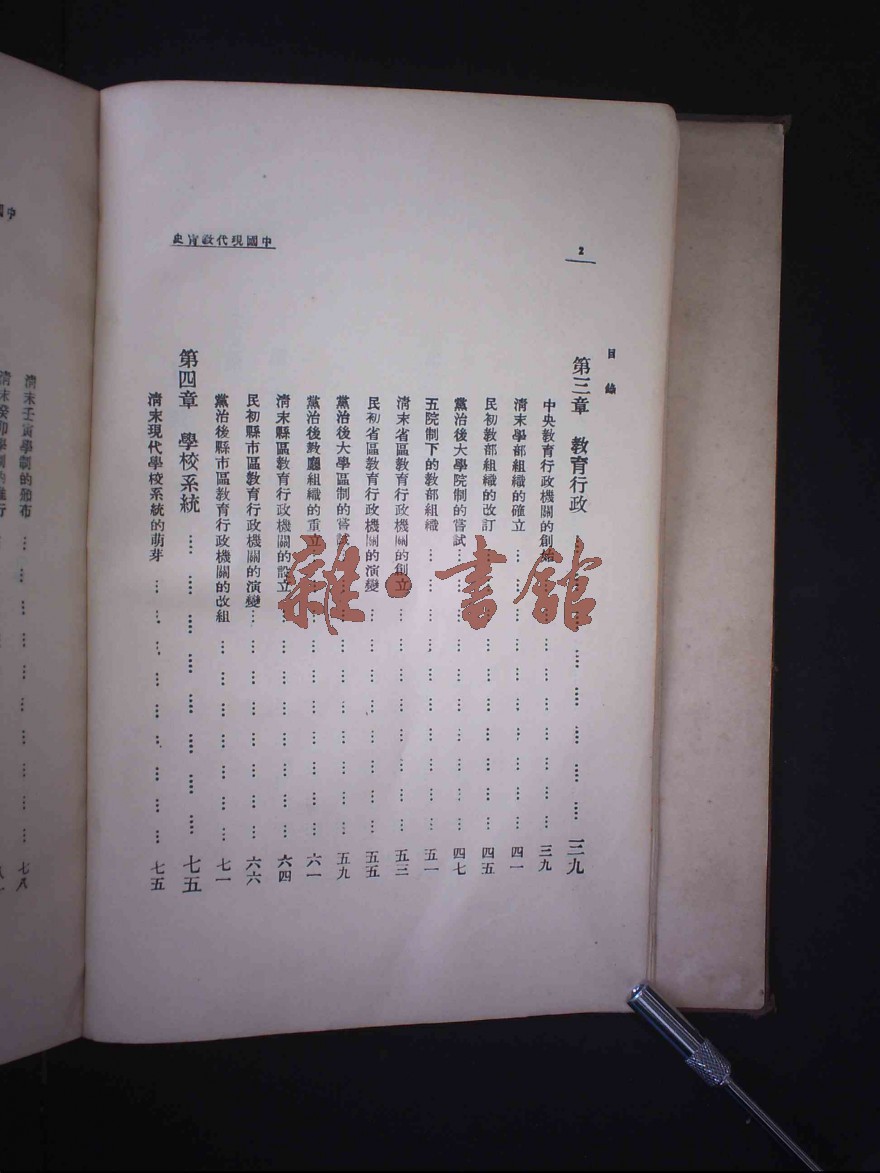 中國現代教育史
2
目錄
第三章 教育行政 …… …… …… …… …… …… 三九
中央教育行政機關的創始 … … … … … … 三九
清末學部組織的確立 … … … … … … … 四一
民初教部組織的改訂 … … … … … … … 四五
黨治後大學院制的嘗試 … … … … … … … 四七
五院制下的教部組織 … … … … … … … 五一
清末省區教育行政機關的創立 … … … … … 五三
民初省區教育行政機關的演變 … … … … … 五五
黨治後大學區制的嘗試 … … … … … … 五九
黨治後教廳組織的重立 … … … … … … 六一
清末縣區教育行政機關的設立 … … … … … 六四
民初縣市區教育行政機關的演變 … … … … … 六六
黨治後縣市區教育行政機關的改組 … … … … … 七一
第四章 學校系統 …… …… …… …… …… …… 七五
清末現代學校系統的萌芽 … … … … … … … 七五
清末壬寅學制的頒布 … … … … … … … 七八
雜·書館